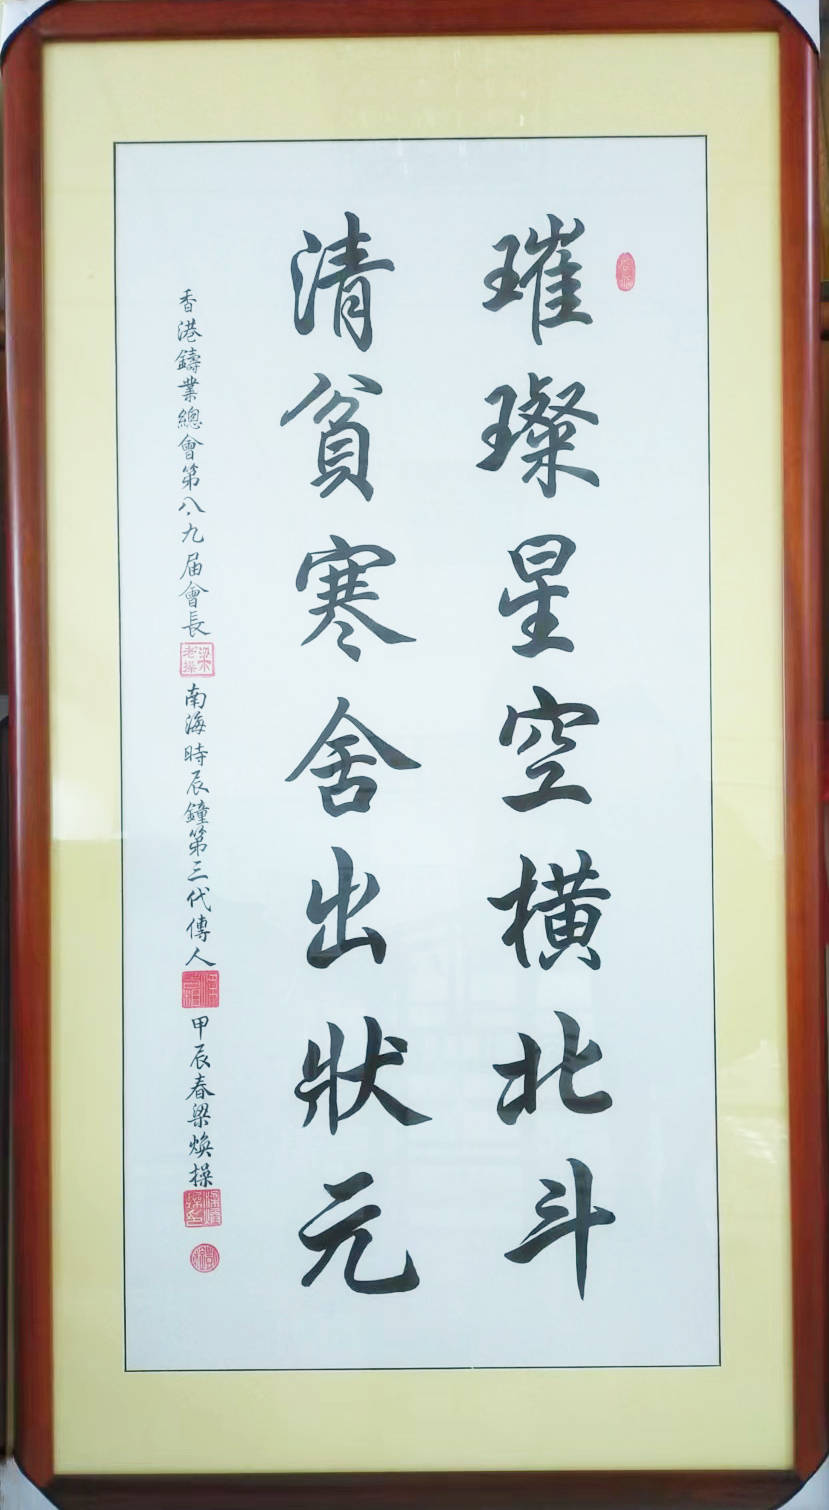 璀璨星空橫北斗
清貧寒舍出狀元
香港鑄業總會第八九届會長 南海時辰鐘第三代傳人 甲辰春梁煥操